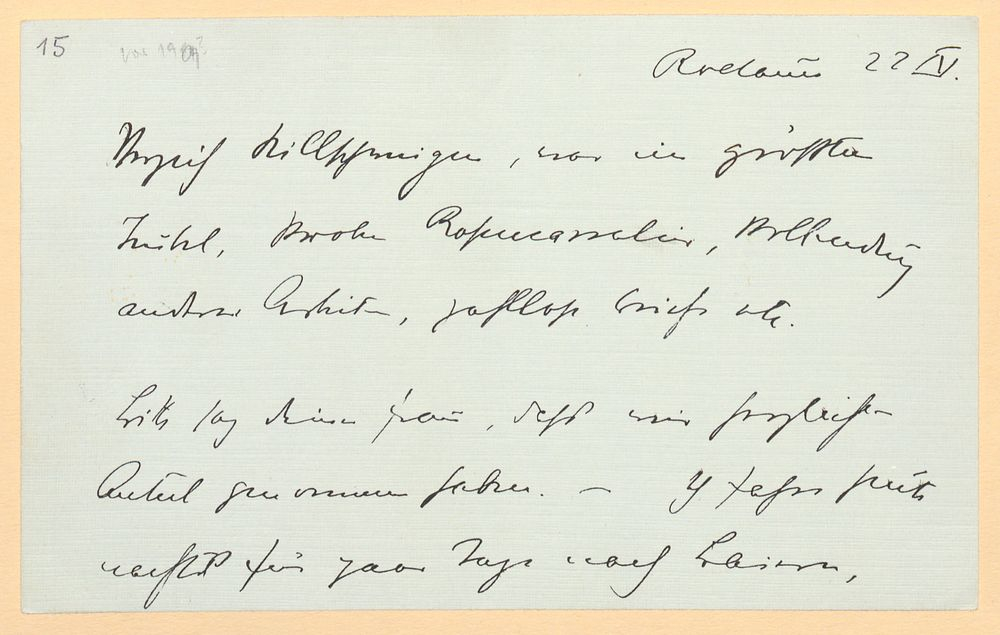 15 vor 19
Rodaun 22 IV.
Verzeih Stillschweigen, war im größten
Trubel, Proben Rosencavalier, Vollendung
anderer Arbeiten, zahllose Briefe etc.
Bitte sag deiner Frau, daß wir herzlichen
Anteil genommen haben. – Ich fahre heute
nachts für paar Tage nach Baiern,